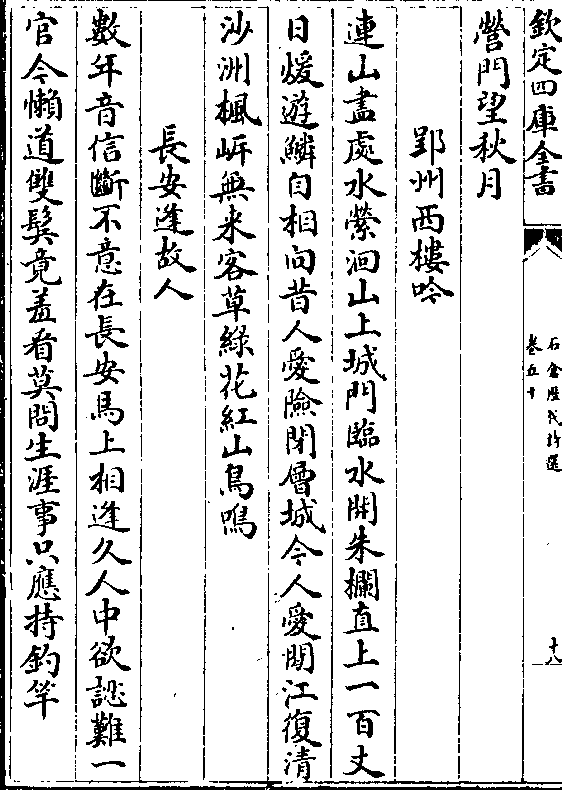 欽定四庫全書
石倉歷代詩選
卷五十
十八
營門望秋月
郢州西樓吟
連山盡處水縈洄山上城門臨水開朱欄直上一百丈
日煖遊鱗自相向昔人愛險閉層城今人愛閒江復清
沙洲楓岸無来客草綠花紅山鳥鳴
長安逢故人
數年音信斷不意在長安馬上相逢久人中欲認難一
官今懶道雙鬂竟羞看莫問生涯事只應持釣竿